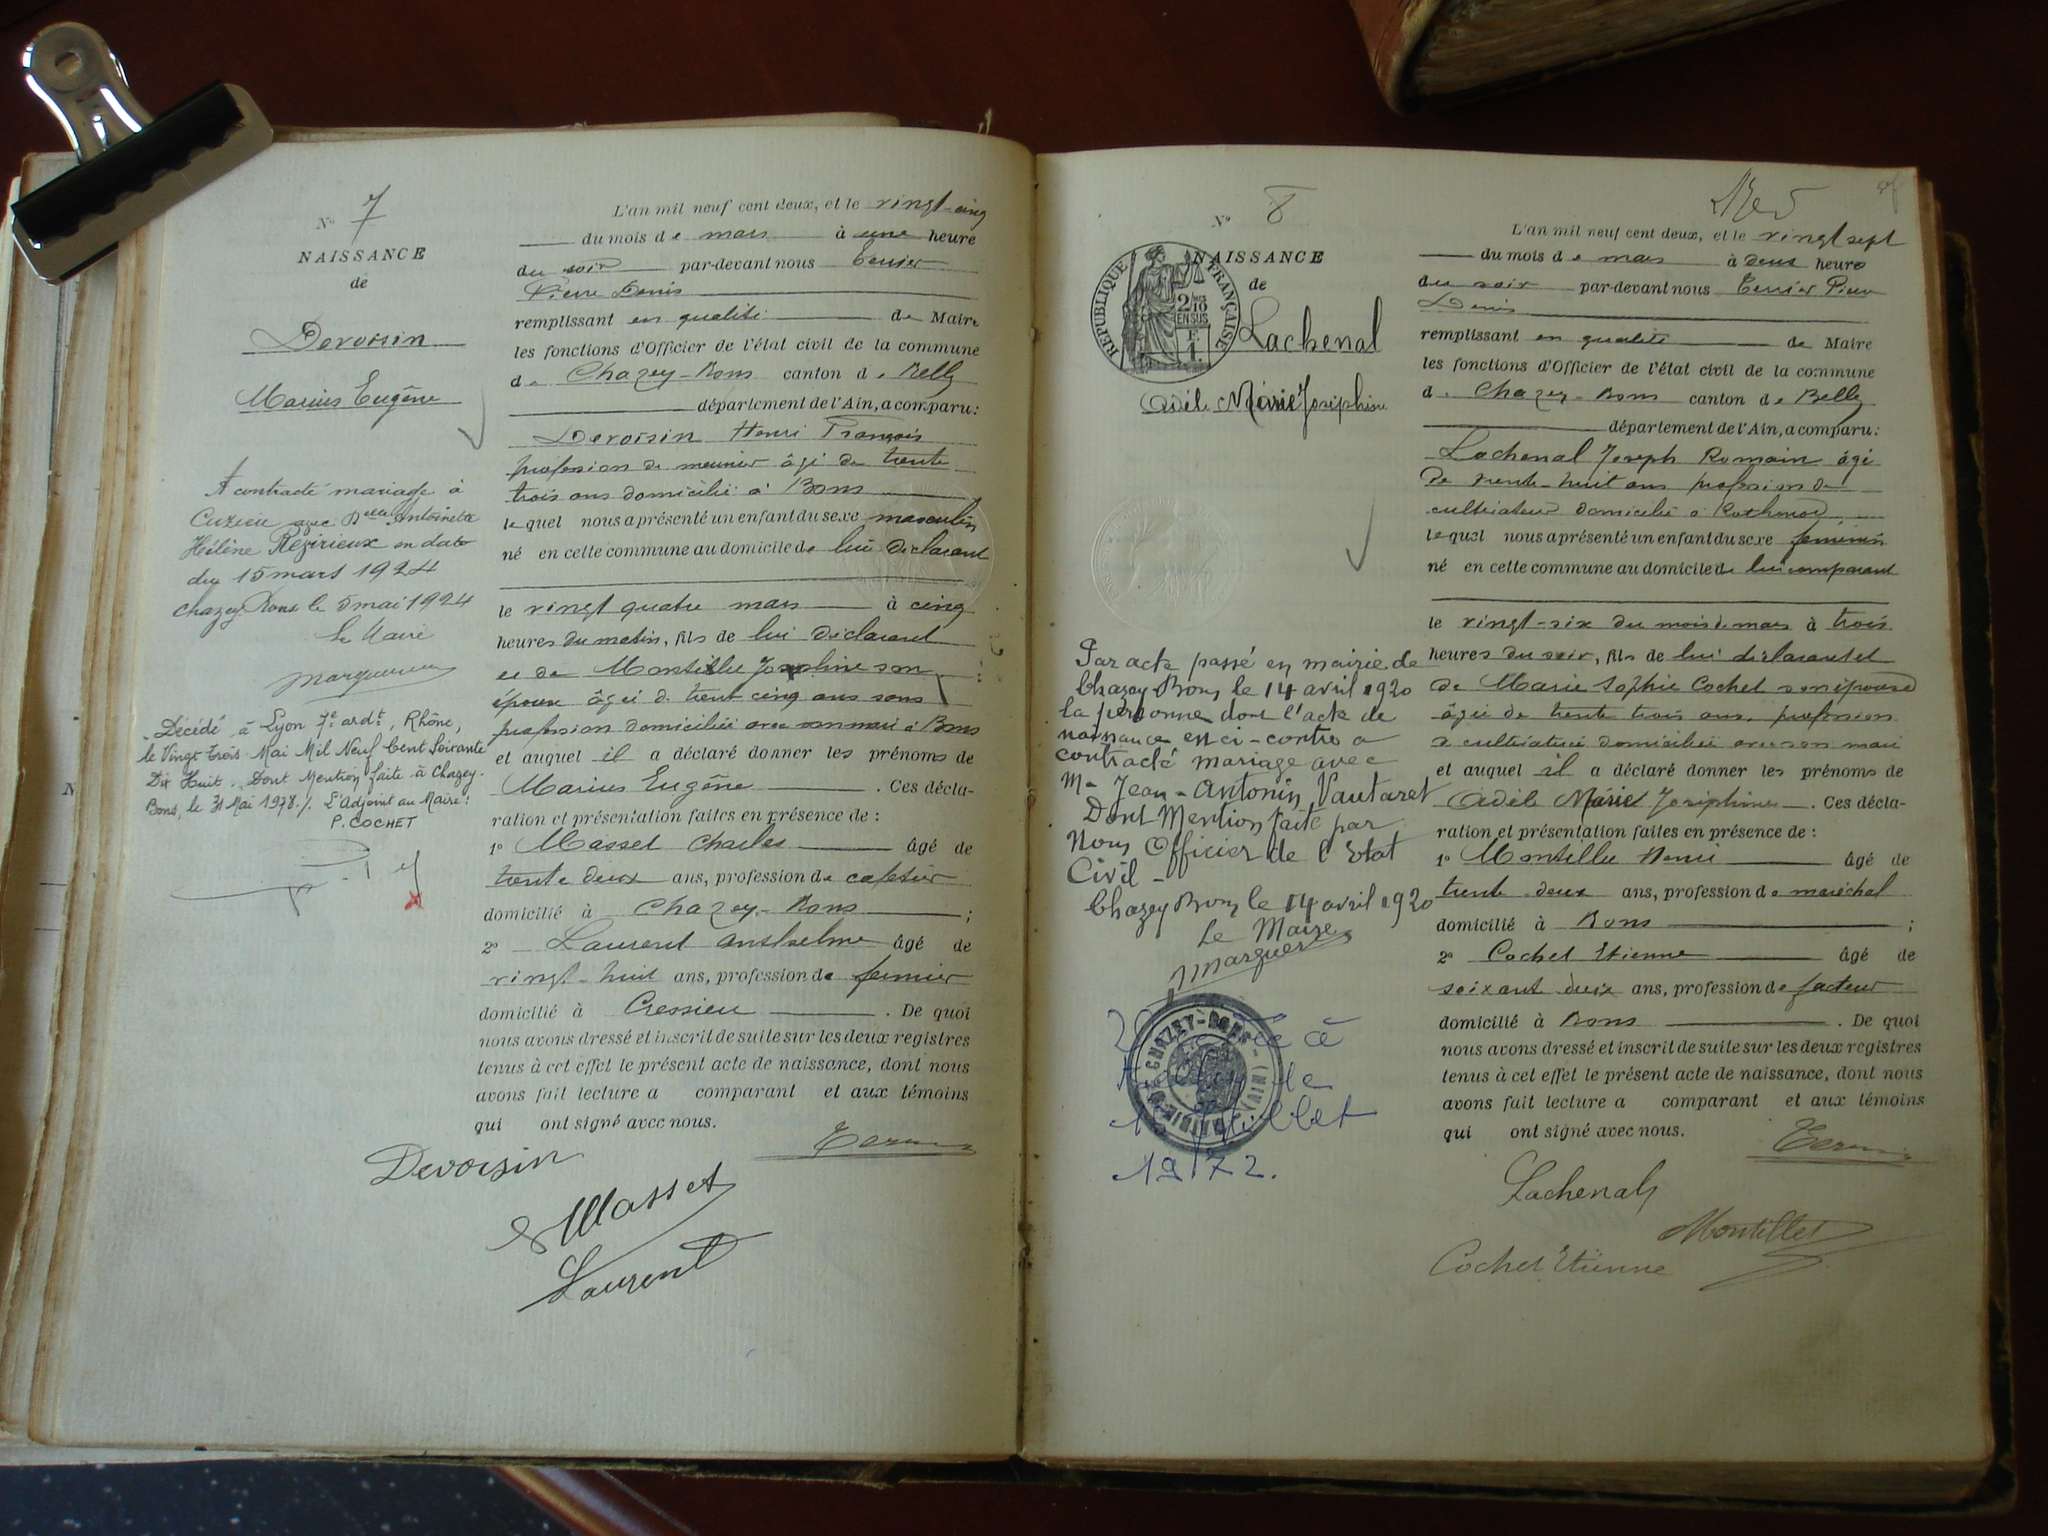 N° 7
NAISSANCE
de
Devoisin
Marius Eugène
A contracté mariage à
Cuzieu avec Delle Antoinette
Hélène Rezirieux en date
du 15 mars 1924
Chazey-Bons le 5 mai 1924
Le Maire
Décédé à Lyon 7e ardt, Rhône,
le Vingt Trois Mai Mil Neuf Cent Soixante
Dix Huit. Dont Mention faite à Chazey-
Bons, le 31 Mai 1978./. L'Adjoint au Maire:
P. COCHET
L'an mil neuf cent deux, et le vingt-cinq
du mois de mars à une heure
du soir par-devant nous Terrier
Pierre Denis
remplissant en qualité de Maire
les fonctions d'Officier de l'état civil de la commune
de Chazey-Bons canton de Belley
département de l'Ain, a comparu:
Devoisin Henri François
profession de meunier âgé de trente
trois ans domicilié à Bons
lequel nous a présenté un enfant du sexe masculin
né en cette commune au domicile de lui déclarant
le vingt quatre mars à cinq
heures du matin, fils de lui déclarant
et de Montillu Josephine son
épouse âgée de trent cinq ans sans
profession domiciliée avec son mari à Bons
et auquel il a déclaré donner les prénoms de
Marius Eugène. Ces décla-
ration et présentation faites en présence de:
1° Masset Charles âgé de
trente deux ans, profession de cafetier
domicilié à Chazey-Bons;
2° Laurent Anthelme âgé de
vingt-huit ans, profession de fermier
domicilié à Cressieu. De quoi
nous avons dressé et inscrit de suite sur les deux registres
tenus à cet effet le présent acte de naissance, dont nous
avons fait lecture a comparant et aux témoins
qui ont signé avec nous.
Devoisin
Masset
Laurent
N° 8
NAISSANCE
de
RÉPUBLIQUE FRANÇAISE
2/10
EN SUS
F.
1.
Lachenal
Adèle Marie Joséphine
Par acte passé en mairie de
Chazey Bons le 14 avril 1920
la personne dont l'acte de
naissance est ci-contre a
contracté mariage avec
Mr Jean-Antonin Vautaret
Dont Mention faite par
Nous Officier de l'Etat
Civil -
Chazey Bons le 14 avril 1920
Le Maire
CHAZEY-BONS (AIN)
à
le
Juillet
1972.
L'an mil neuf cent deux, et le vingt sept
du mois de mars à deux heure
du soir par-devant nous Terrier Pierre
Denis
remplissant en qualité de Maire
les fonctions d'Officier de l'état civil de la commune
de Chazey-Bons canton de Belley
département de l'Ain, a comparu:
Lachenal Joseph Romain âgé
de trente-huit ans profession de
cultivateur domicilié à Rothonod
lequel nous a présenté un enfant du sexe feminin
né en cette commune au domicile de lui comparant
le vingt-six du mois de mars à trois
heures du soir, fils de lui déclarant et
de Marie Sophie Cochet son épouse
âgée de trente trois ans, profession
de cultivatrice domiciliée avec son mari
et auquel il a déclaré donner les prénoms de
Adèle Marie Joséphine. Ces décla-
ration et présentation faites en présence de:
1° Montillu Henri âgé de
trente deux ans, profession de maréchal
domicilié à Bons;
2° Cochet Etienne âgé de
soixant deux ans, profession de facteur
domicilié à Bons. De quoi
nous avons dressé et inscrit de suite sur les deux registres
tenus à cet effet le présent acte de naissance, dont nous
avons fait lecture a comparant et aux témoins
qui ont signé avec nous.
Lachenal
Montillet
Cochet Etienne